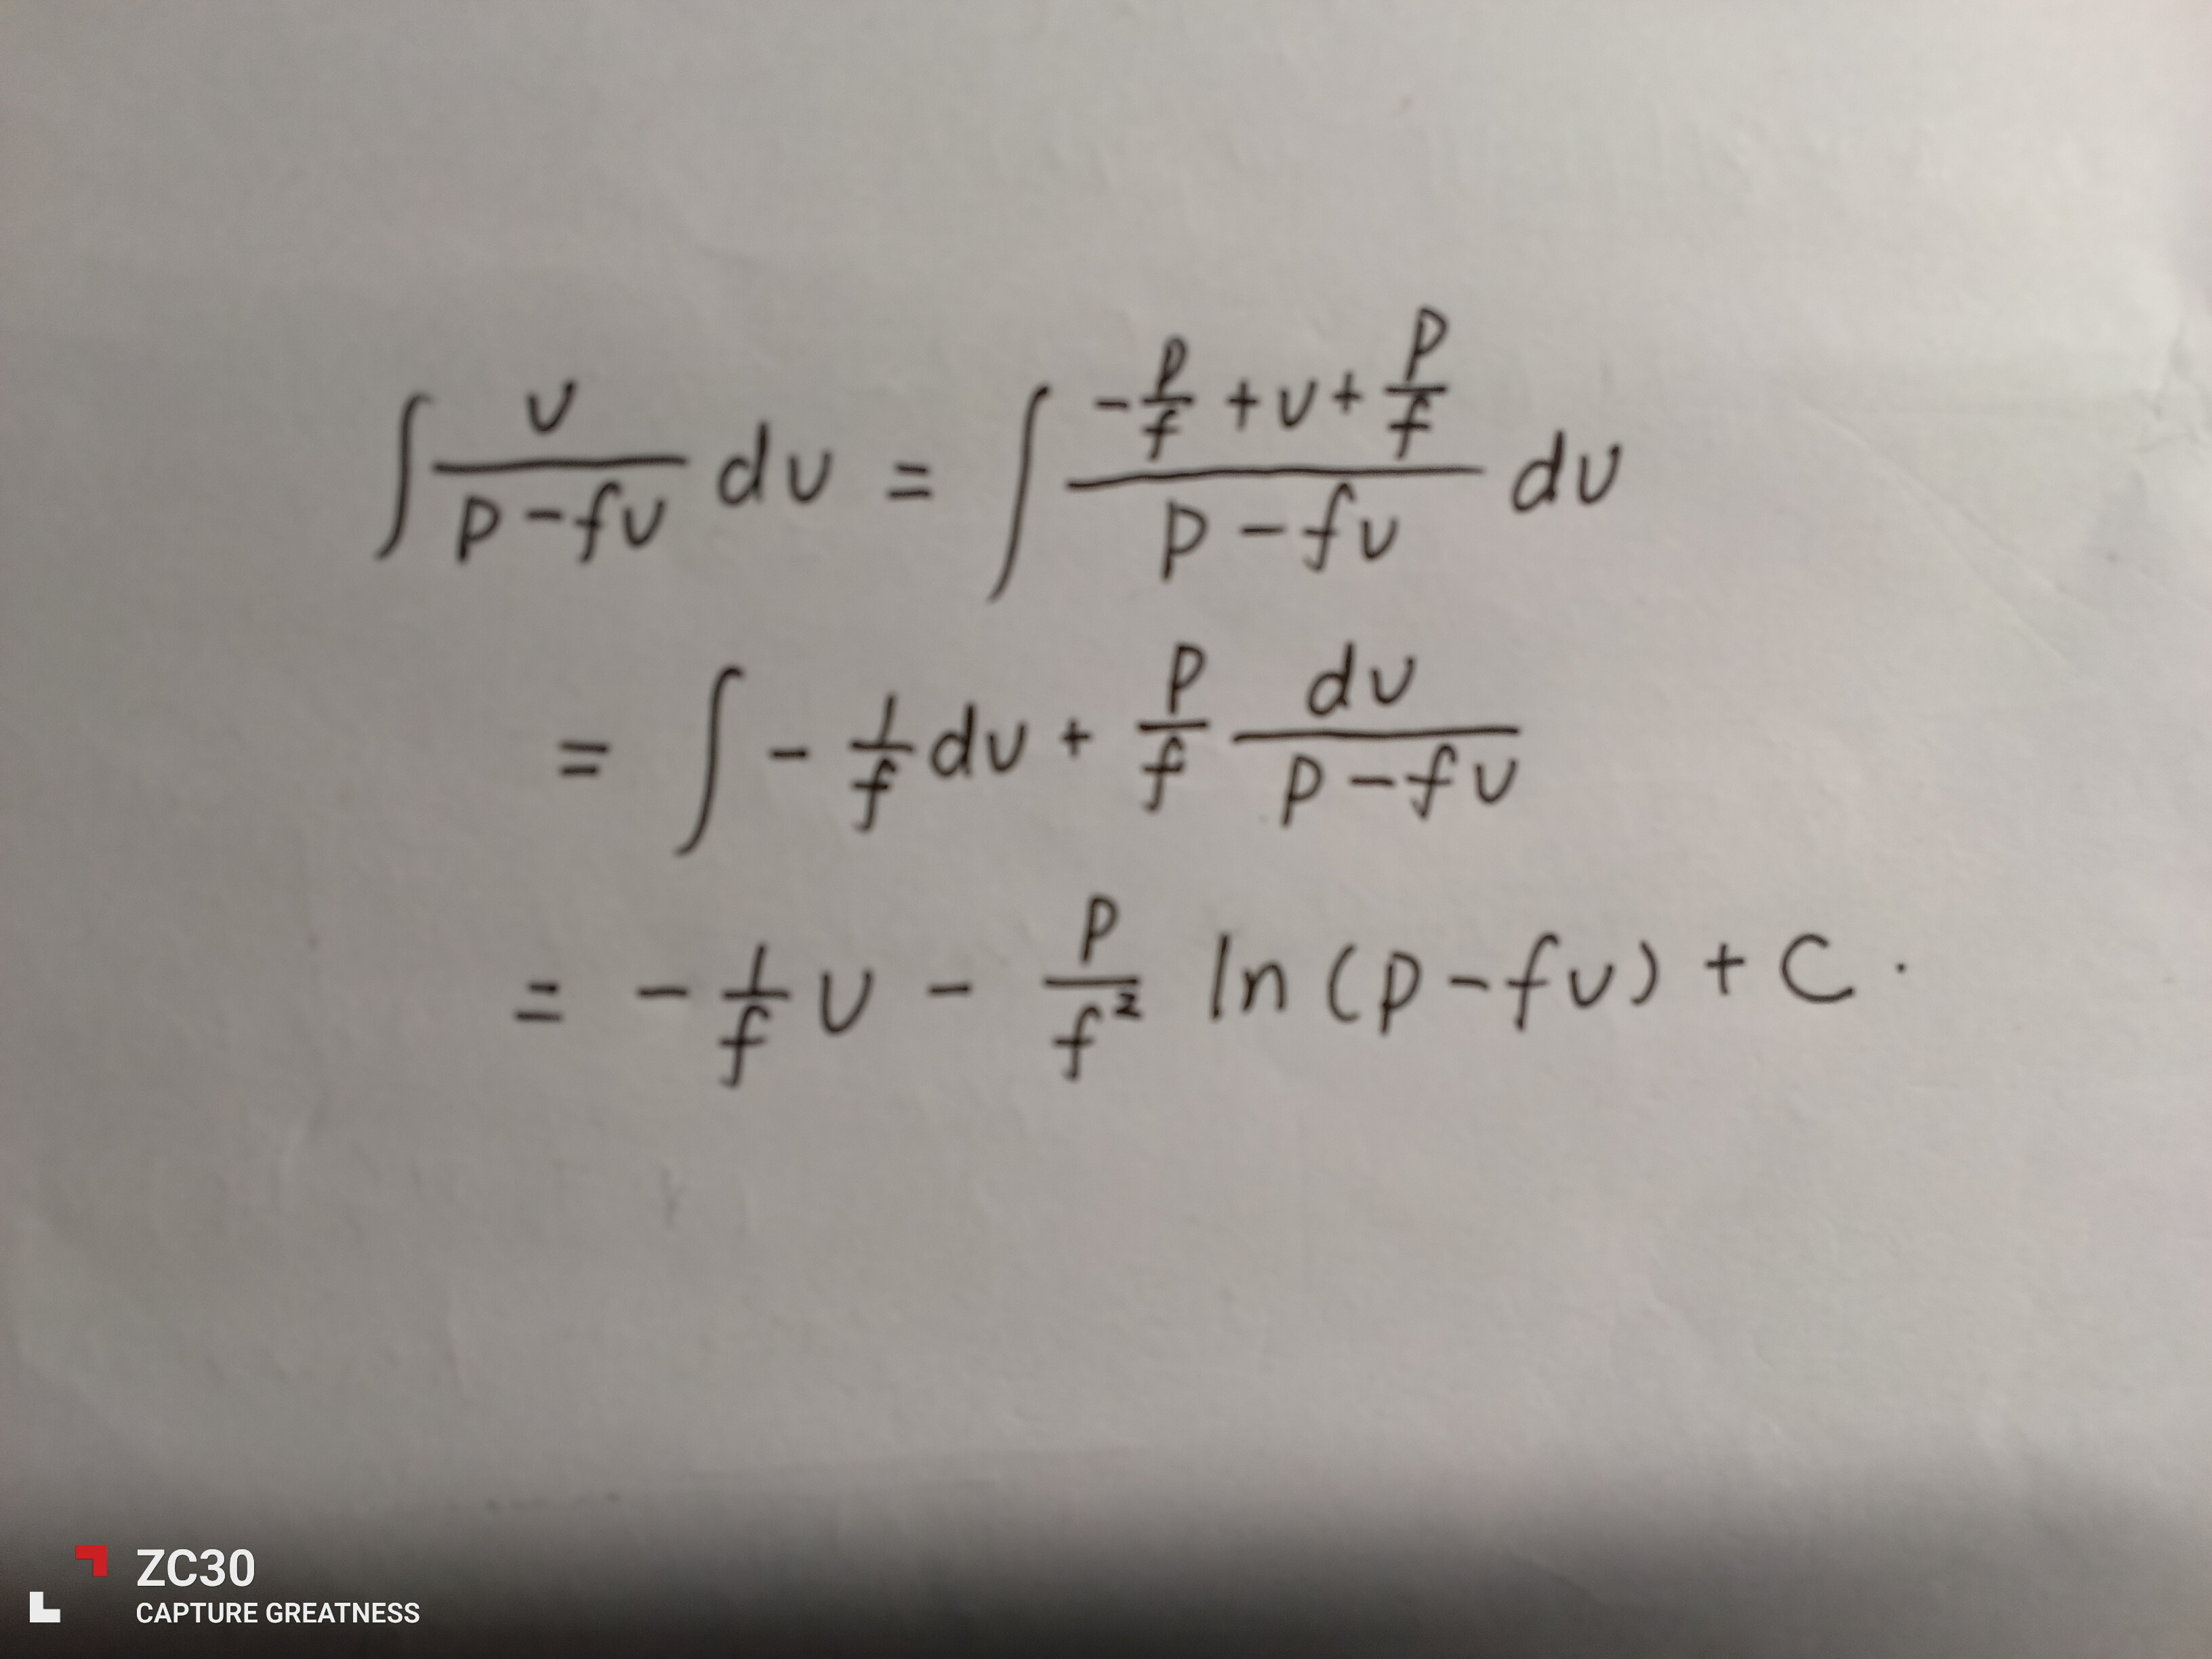 ∫ v/(p-fv) dv = ∫ (-p/f + v + p/f)/(p-fv) dv
= ∫ - 1/f dv + p/f dv/(p-fv)
= - 1/f v - p/f² ln(p-fv) + C.
ZC30
CAPTURE GREATNESS